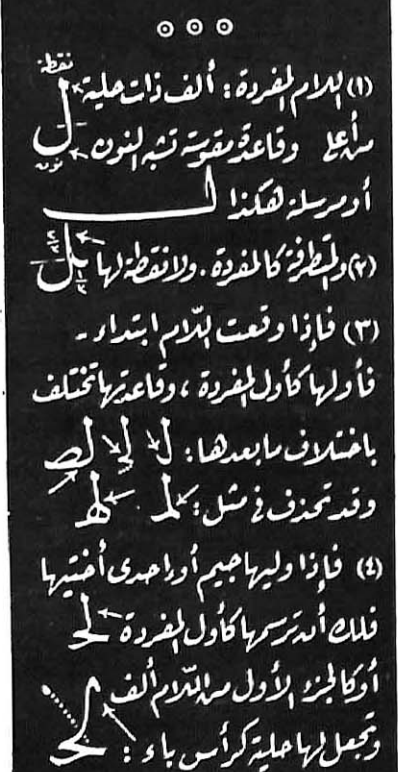 نقطة
(١) اللام المفردة : ألف ذات حلية
من أعلى وقاعدة مقوسة تشبه النون
نون
أو مرسلة هكذا
(٢) والمتطرفة كالمفردة . ولا نقطة لها
(٣) فإذا وقعت اللام ابتداء -
فأولها كأول المفردة ، وقاعدتها تختلف
باختلاف ما بعدها :
وقد تحذف في مثل :
(٤) فإذا وليها جيم أو احدى أختيها
فلك أن ترسمها كأول المفردة
أو كالجزء الأول من اللام ألف
وتجعل لها حلية كرأس باء :